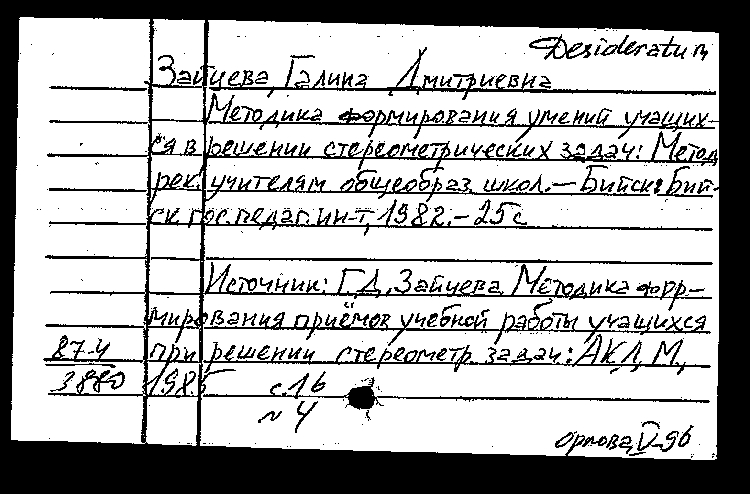 Desideratum
Зайцева, Галина Дмитриевна
Методика формирования умений учащих-
ся в решении стереометрических задач: Метод.
рек. учителям общеобраз. школ. — Бийск: Бий-
ск. гос. педаг. ин-т, 1982. - 25 с.
Источник: Г.Д. Зайцева. Методика фор-
мирования приёмов учебной работы учащихся
87-4 при решении стереометр. задач: АКД, М,
3880 1985 с. 16
N 4
Орлова, V-96